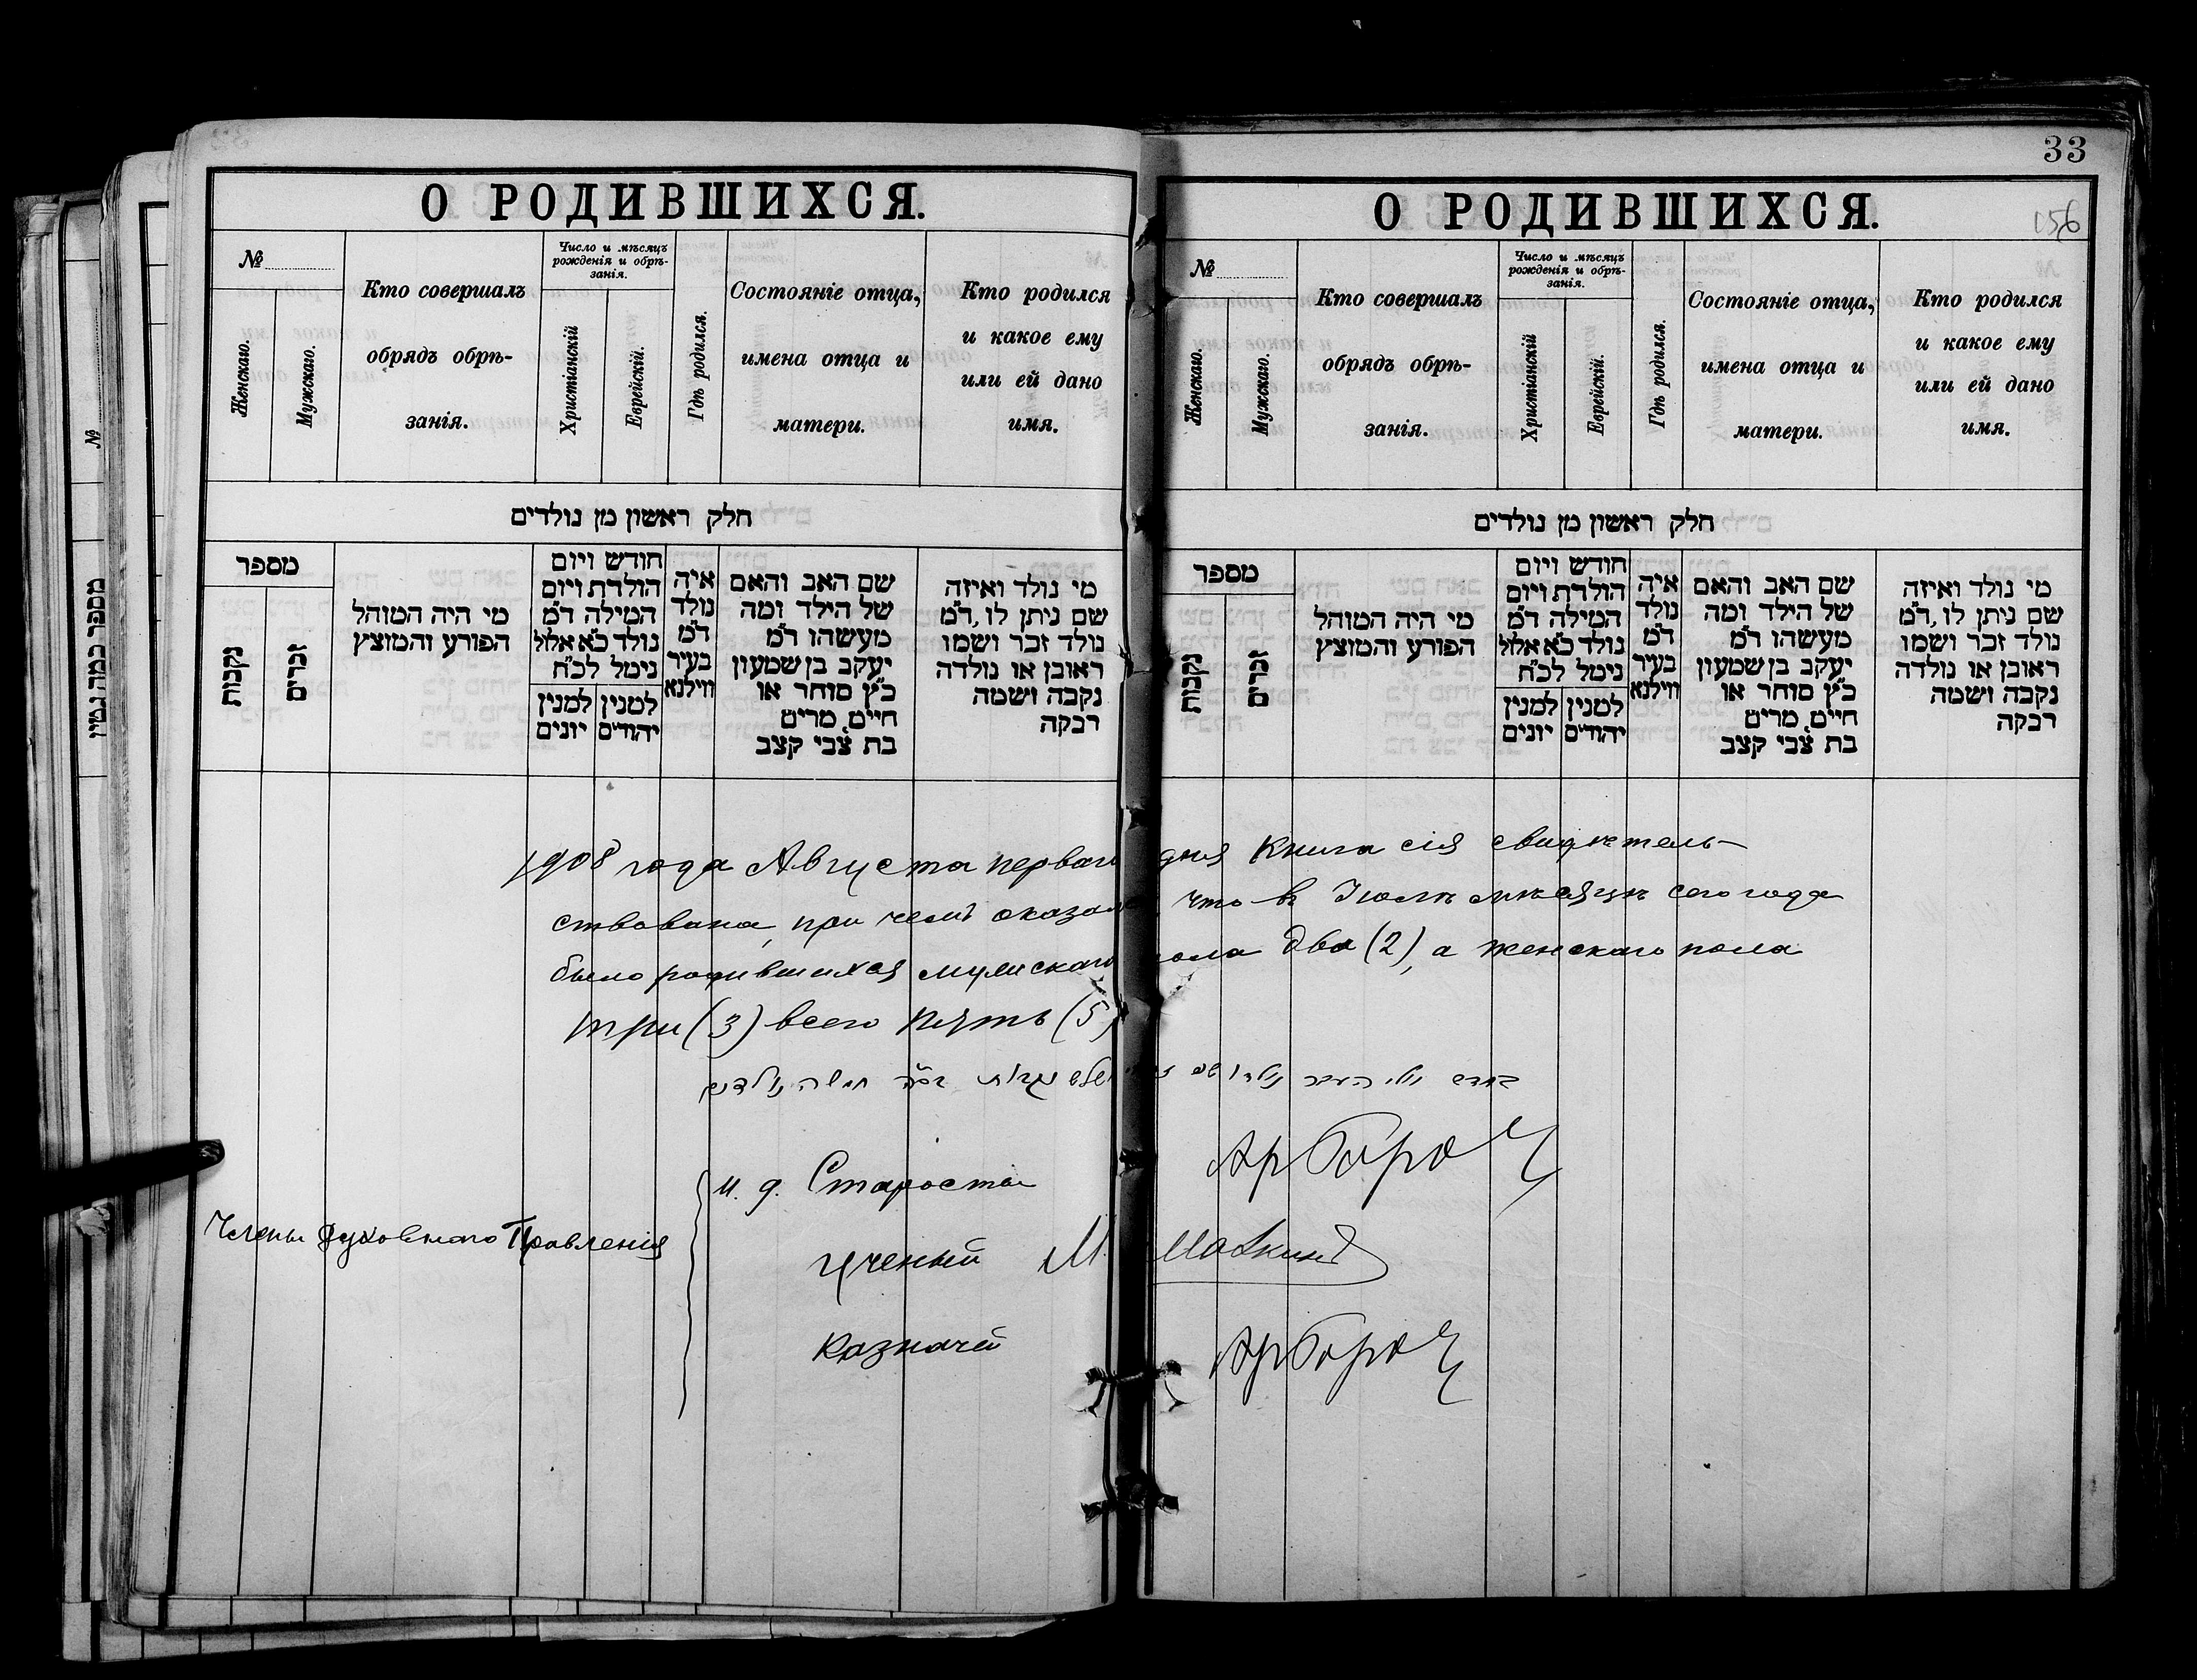 33
156
О РОДИВШИХСЯ.
№
Женскаго.
Мужскаго.
Кто совершалъ
обрядъ обрѣ-
занія.
Число и мѣсяцъ
рожденія и обрѣ-
занія.
Христіанскій
Еврейскій.
Гдѣ родился.
Состояніе отца,
имена отца и
матери.
Кто родился
и какое ему
или ей дано
имя.
חלק ראשון מן נולדים
מספר
נקבות
זכרים
מי היה המוהל
הפורע והמוצץ
חודש ויום
הולדת ויום
המילה ד״מ
נולד כ״א אלול
נימל לכ״ח
למנין יונים
למנין יהודים
איה
נולד
ד״מ
בעיר
ווילנא
שם האב והאם
של הילד ומה
מעשהו ד״מ
יעקב בן שמעון
כ״ץ סוחר או
חיים, מרים
בת צבי קצב
מי נולד ואיזה
שם ניתן לו, ד״מ
נולד זכר ושמו
ראובן או נולדה
נקבה ושמה
רבקה
О РОДИВШИХСЯ.
№
Женскаго.
Мужскаго.
Кто совершалъ
обрядъ обрѣ-
занія.
Число и мѣсяцъ
рожденія и обрѣ-
занія.
Христіанскій
Еврейскій.
Гдѣ родился.
Состояніе отца,
имена отца и
матери.
Кто родился
и какое ему
или ей дано
имя.
חלק ראשון מן נולדים
מספר
נקבות
זכרים
מי היה המוהל
הפורע והמוצץ
חודש ויום
הולדת ויום
המילה ד״מ
נולד כ״א אלול
נימל לכ״ח
למנין יונים
למנין יהודים
איה
נולד
ד״מ
בעיר
ווילנא
שם האב והאם
של הילד ומה
מעשהו ד״מ
יעקב בן שמעון
כ״ץ סוחר או
חיים, מרים
בת צבי קצב
מי נולד ואיזה
שם ניתן לו, ד״מ
נולד זכר ושמו
ראובן או נולדה
נקבה ושמה
רבקה
1908 года Августа перваго дня Книга сія свидѣтель-
ствована, при чемъ оказало что въ Іюлѣ мѣсяцѣ сего года
было родившихся мужскаго пола два (2), а женскаго пола
три (3) всего пять (5)
Члены Духовнаго Правленія
и. д. Староста
Ученый М
Казначей
מספר כמה נמין
№